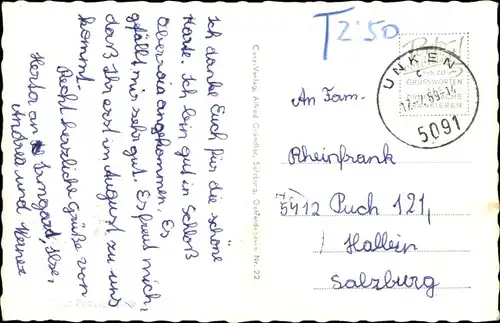 Ich danke Euch für die schöne
Karte. Ich bin gut in Schloß
Oberrain angekommen. Es
gefällt mir sehr gut. Es freut mich,
daß Ihr erst im August zu uns
kommt.
Recht herzliche Grüße von
Herta an Irmgard, Ilse,
Andrea und Heinz
Cosy-Verlag, Alfred Gründler, Salzburg, Getreidegasse Nr. 22
T 2·50
UNKEN
c
17.-7.69-14
5091
BIS ZU 5
GRUSSWORTEN
FRANKIEREN
An Fam.
Rheinfrank
5412 Puch 121,
Hallein
Salzburg